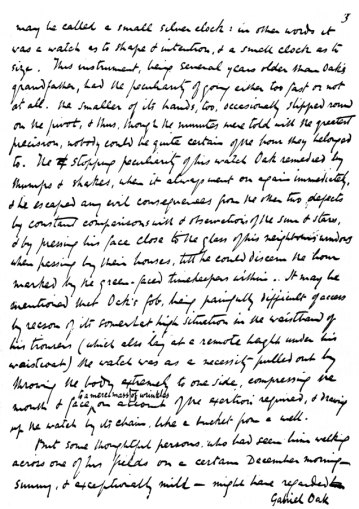 3
may be called a small silver clock: in other words it
was a watch as to shape & intention, & a small clock as to
size. This instrument, being several years older than Oak's
grandfather, had the peculiarity of going either too fast or not
at all. The smaller of its hands, too, occasionally slipped round
on the pivot, & thus, though the minutes were told with the greatest
precision, nobody could be quite certain of the hour they belonged
to. The stopping peculiarity of his watch Oak remedied by
thumps & shakes, when it always went on again immediately,
& he escaped any evil consequences from the other two defects
by constant comparisons with & observations of the sun & stars,
& by pressing his face close to the glass of his neighbours' windows
when passing by their houses, till he could discern the hour
marked by the green-faced timekeepers within. It may be
mentioned that Oak's fob, being painfully difficult of access
by reason of its somewhat high situation in the waistband of
his trousers (which also lay at a remote height under his
waistcoat) the watch was as a necessity pulled out by
throwing the body extremely to one side, compressing the
mouth & face to a mere mass of wrinkles on account of the exertion required, & drawing
up the watch by its chain, like a bucket from a well.
But some thoughtful persons, who had seen him walking
across one of his fields on a certain December morning -
sunny, & exceptionally mild - might have regarded
Gabriel Oak